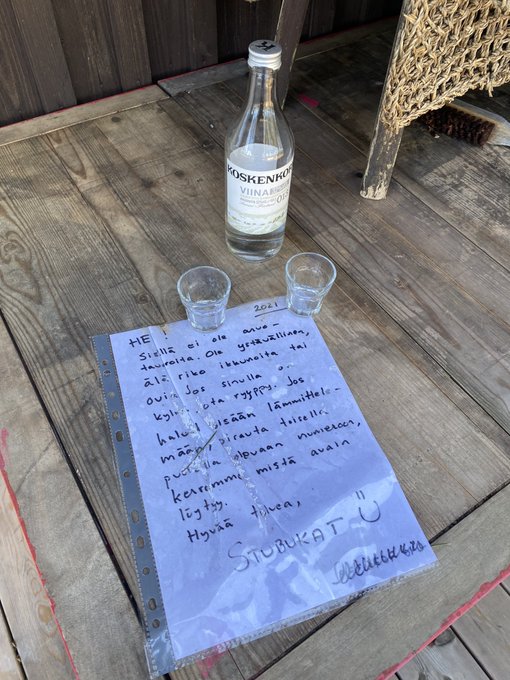 KOSKENKOR
VIINA
2021
HE
Siellä ei ole arvo-
tavaroita. Ole ystävällinen,
älä riko ikkunoita tai
ovia. Jos sinulla on
kylmä, ota ryyppy. Jos
haluat sisään lämmittele-
mään, pirauta toisella
puolella olevaan numeroon,
kerromme mistä avain
löytyy.
Hyvää talvea,
STUBUKAT